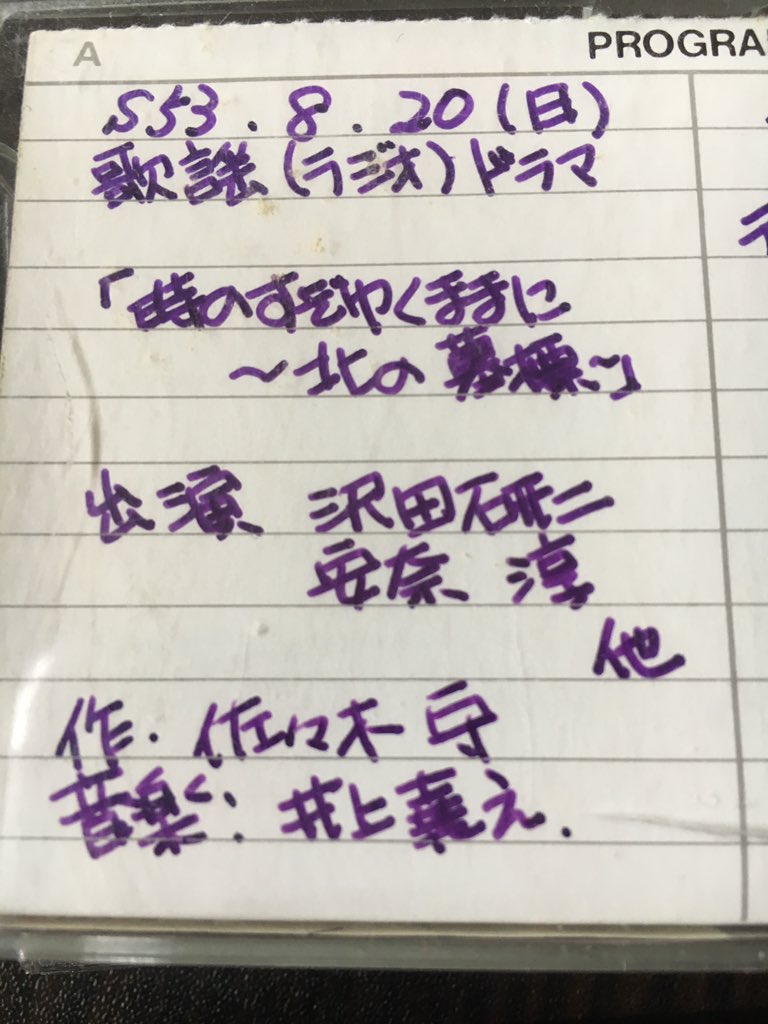 A
PROGRA
S53.8.20(日)
歌謡(ラジオ)ドラマ
「時のすぎゆくままに
～北の墓標～」
出演 沢田研二
安奈 淳
他
作. 佐々木 守
音楽: 井上堯之.